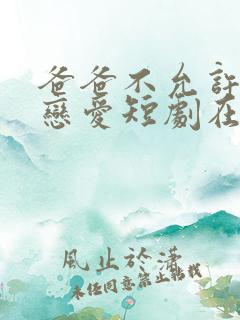 爸爸不允許
戀愛短劇在
風止於瀟
未經同意禁止轉載